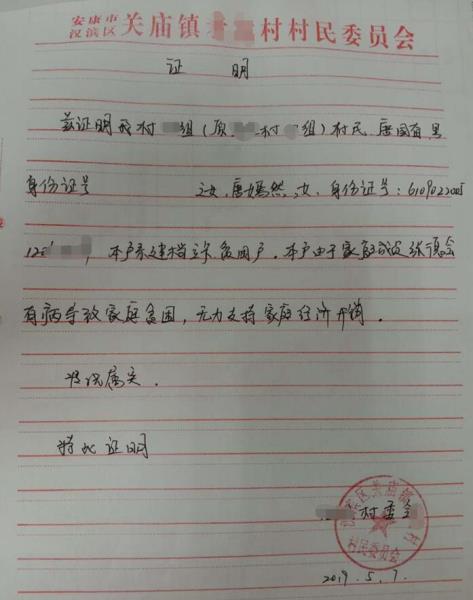 安康市汉滨区关庙镇 村村民委员会
证 明
兹证明我村 组(原 村 组)村民 唐国有 男
身份证号 之女,唐嫣然,女,身份证号:6109022005
12 ,本户系建档立卡贫困户。本户由于家庭成员
有病导致家庭贫困,无力支持家庭经济开销。
情况属实。
特此证明
村委会
汉滨区关庙镇 村
村民委员会
2019.5.7.